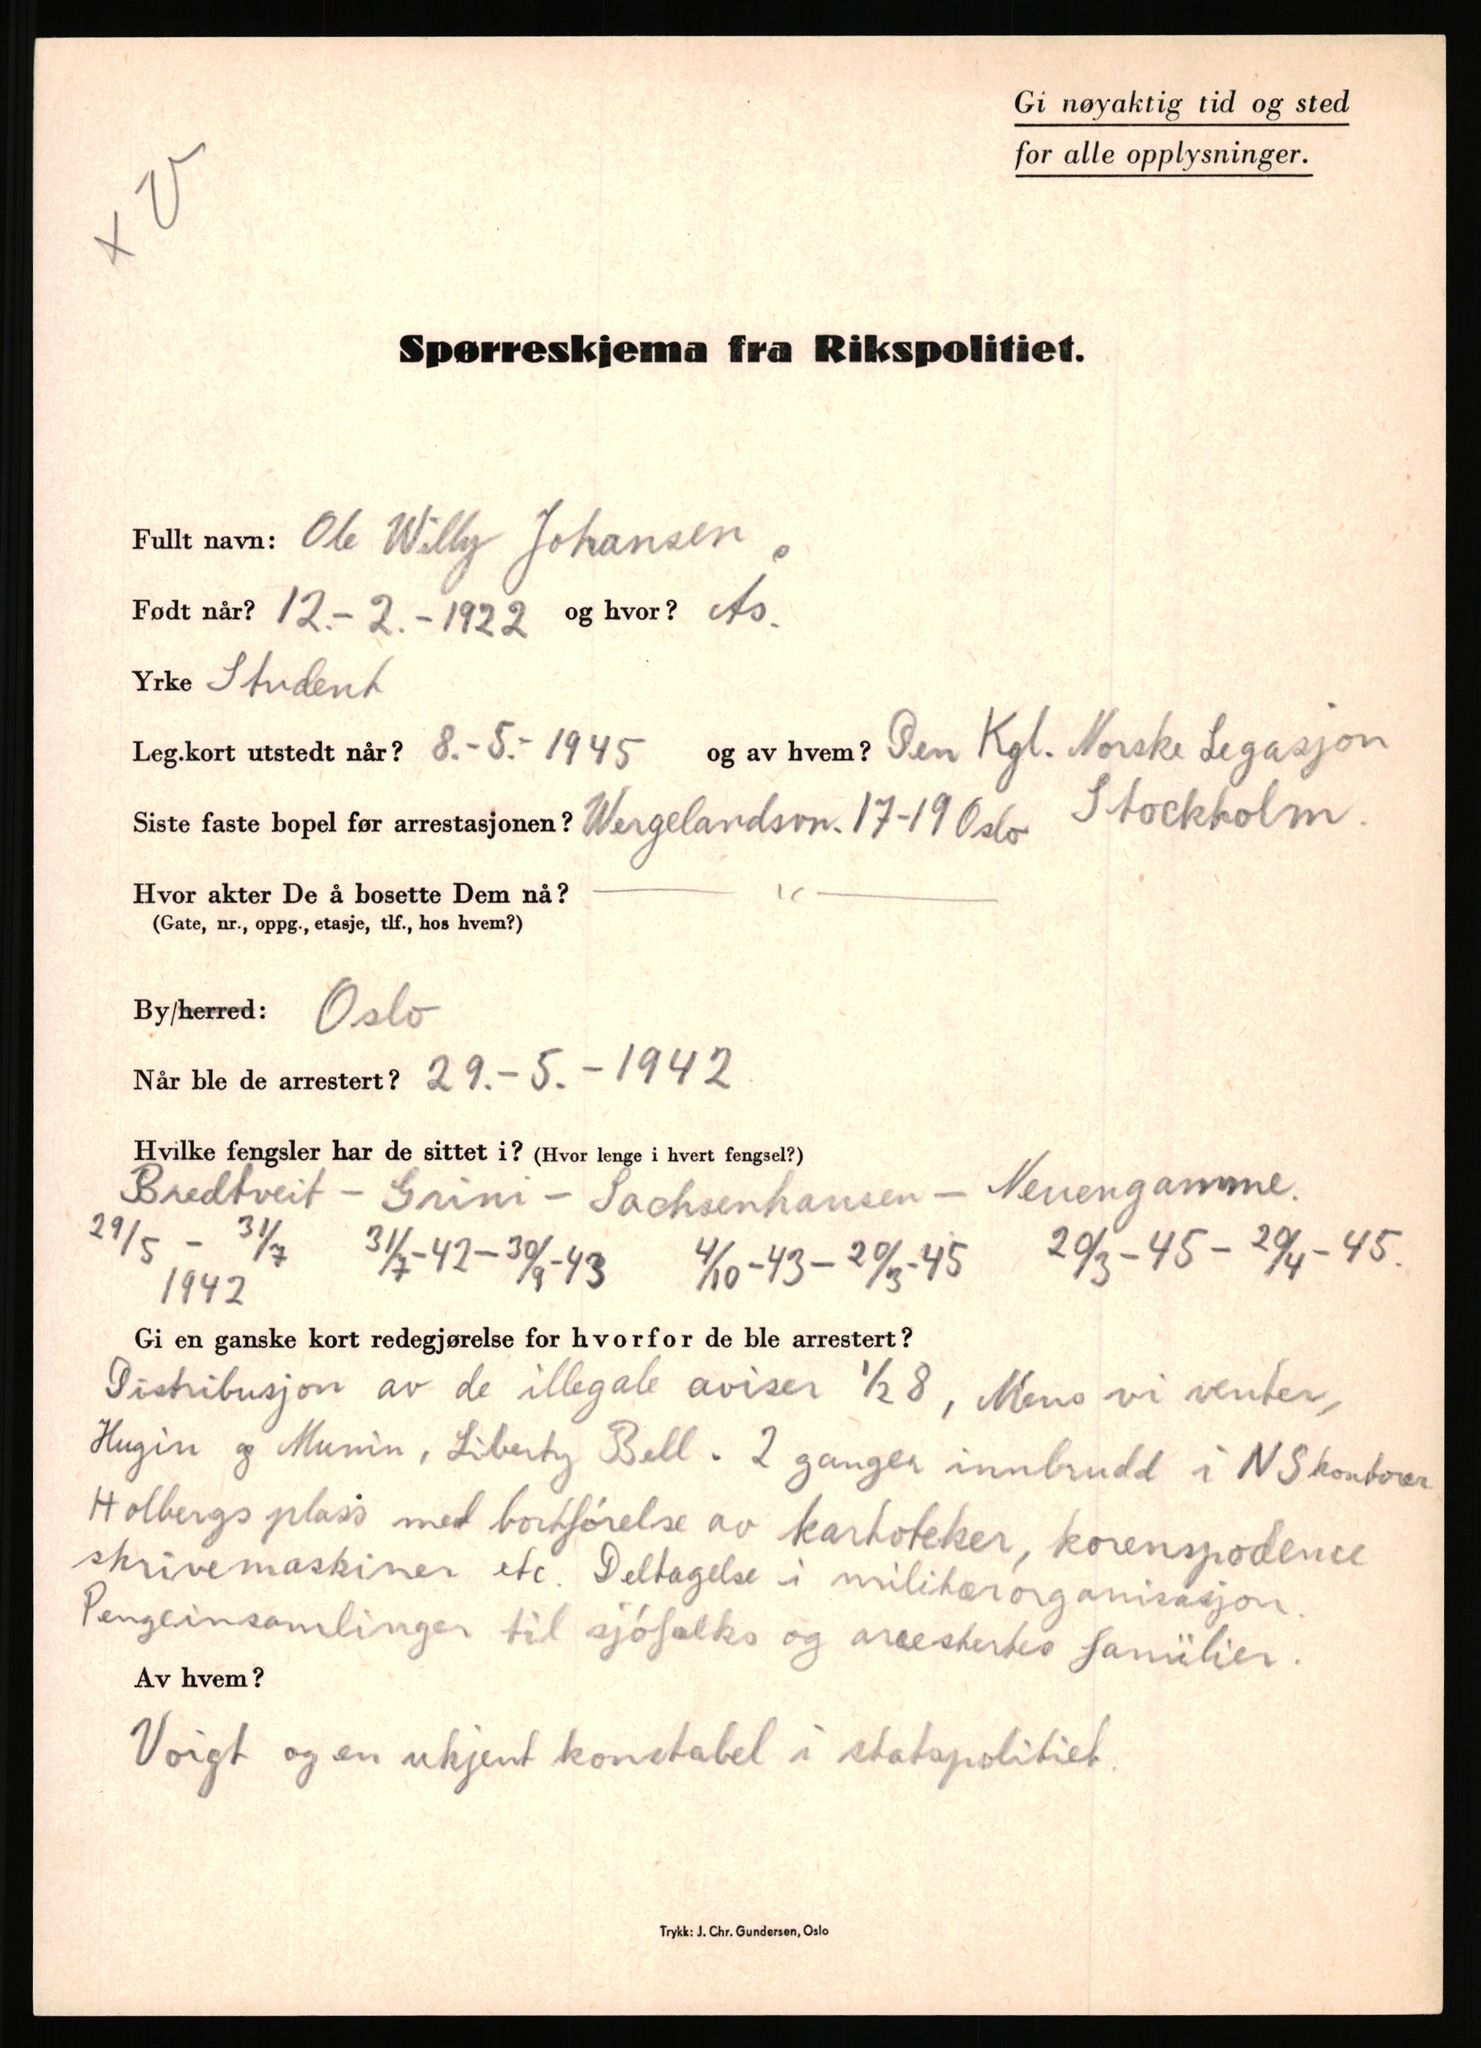 Gi nøyaktig tid og sted
for alle opplysninger.
x V
Spørreskjema fra Rikspolitiet.
Fullt navn: Ole Willy Johansen
Født når? 12.-2.-1922 og hvor? Ås.
Yrke Student
Leg.kort utstedt når? 8.-5.-1945 og av hvem? Den Kgl. Norske Legasjon
Stockholm.
Siste faste bopel før arrestasjonen? Wergelandsvn. 17-19 Oslo
Hvor akter De å bosette Dem nå? — " —
(Gate, nr., oppg., etasje, tlf., hos hvem?)
By/herred: Oslo
Når ble de arrestert? 29.-5.-1942
Hvilke fengsler har de sittet i? (Hvor lenge i hvert fengsel?)
Bredtveit - Grini - Sachsenhausen - Neuengamme.
29/5 - 31/7 31/7-42-30/9-43 4/10-43-20/3-45 20/3-45-20/4-45.
1942
Gi en ganske kort redegjørelse for hvorfor de ble arrestert?
Distribusjon av de illegale aviser 1/2 8, Mens vi venter,
Hugin og Munin, Liberty Bell. 2 ganger innbrudd i NS kontorer
Holbergs plass med bortførelse av kartoteker, korenspodence
skrivemaskiner etc. Deltagelse i militærorganisasjon.
Pengeinsamlinger til sjøfolks og arrestertes familier.
Av hvem?
Voigt og en ukjent konstabel i statspolitiet.
Trykk: J. Chr. Gundersen, Oslo